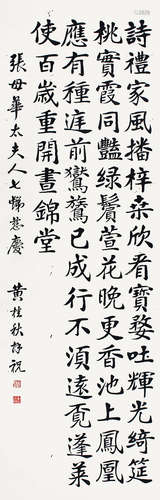 詩禮家風播梓桑欣看寶婺吐輝光綺筵
桃實霞同豔綠鬢萱花晚更香池上鳳凰
應有種庭前鸑鷟已成行不須遠覓蓬萊
使百歲重開晝錦堂
張母華太夫人七慈慶
黃桂秋拜祝